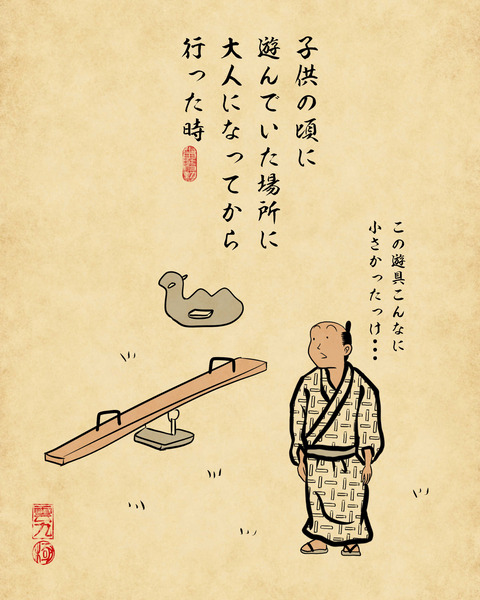 子供の頃に
遊んでいた場所に
大人になってから
行った時
この遊具こんなに
小さかったっけ・・・